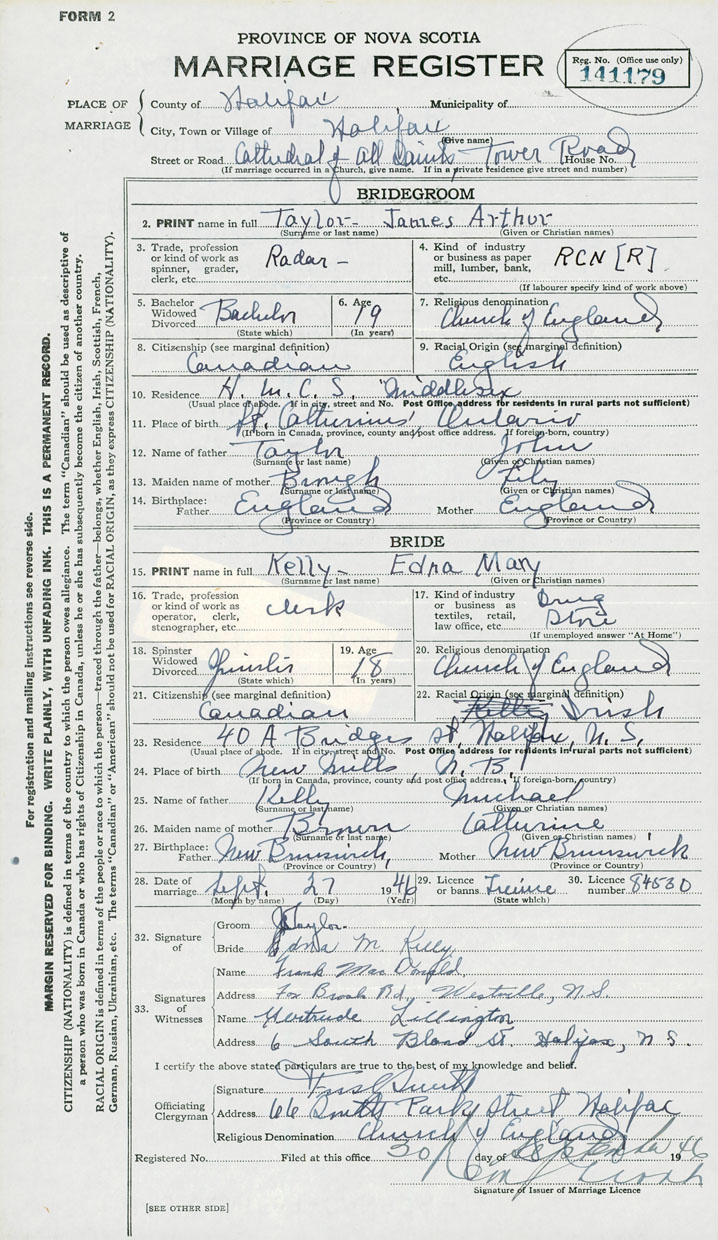 FORM 2
PROVINCE OF NOVA SCOTIA
MARRIAGE REGISTER
Reg. No. (Office use only)
141179
PLACE OF MARRIAGE
County of Halifax Municipality of
City, Town or Village of Halifax
(Give name)
Street or Road Cathedral of All Saints - Tower Road House No.
(If marriage occurred in a Church, give name. If in a private residence give street and number)
BRIDEGROOM
2. PRINT name in full Taylor - James Arthur
(Surname or last name) (Given or Christian names)
3. Trade, profession or kind of work as spinner, grader, clerk, etc. Radar -
4. Kind of industry or business as paper mill, lumber, bank, etc. RCN [R]
(If labourer specify kind of work above)
5. Bachelor Widowed Divorced Bachelor
(State which)
6. Age 19
(In years)
7. Religious denomination
Church of England
8. Citizenship (see marginal definition)
Canadian
9. Racial Origin (see marginal definition)
English
10. Residence H. M. C. S. Middlesex
(Usual place of abode. If in city, street and No. Post Office address for residents in rural parts not sufficient)
11. Place of birth St. Catharines, Ontario
(If born in Canada, province, county and post office address. If foreign-born, country)
12. Name of father Taylor John
(Surname or last name) (Given or Christian names)
13. Maiden name of mother Brough Lily
(Surname or last name) (Given or Christian names)
14. Birthplace: Father England Mother England
(Province or Country) (Province or Country)
BRIDE
15. PRINT name in full Kelly - Edna Mary
(Surname or last name) (Given or Christian names)
16. Trade, profession or kind of work as operator, clerk, stenographer, etc. clerk
17. Kind of industry or business as textiles, retail, law office, etc. Drug Store
(If unemployed answer "At Home")
18. Spinster Widowed Divorced Spinster
(State which)
19. Age 18
(In years)
20. Religious denomination
Church of England
21. Citizenship (see marginal definition)
Canadian
22. Racial Origin (see marginal definition)
Irish
23. Residence 40 A Bridges St, Halifax, N. S.
(Usual place of abode. If in city street and No. Post Office address for residents in rural parts not sufficient)
24. Place of birth New Mills, N. B.
(If born in Canada, province, county and post office address. If foreign-born, country)
25. Name of father Kelly Michael
(Surname or last name) (Given or Christian names)
26. Maiden name of mother Brown Catherine
(Surname or last name) (Given or Christian names)
27. Birthplace: Father New Brunswick, Mother New Brunswick
(Province or Country) (Province or Country)
28. Date of marriage Sept. 27 1946
(Month by name) (Day) (Year)
29. Licence or banns Licence
(State which)
30. Licence number 84530
32. Signature of
Groom J Taylor.
Bride Edna M. Kelly
33. Signatures of Witnesses
Name Frank MacDonald,
Address Fox Brook Rd, Westville, N.S.
Name Gertrude Lillington
Address 6 South Bland St. Halifax, N S.
I certify the above stated particulars are true to the best of my knowledge and belief.
Officiating Clergyman
Signature Smith
Address 66 South Park Street Halifax
Religious Denomination Church of England
Registered No. Filed at this office 30 day of September 1946
Signature of Issuer of Marriage Licence
[SEE OTHER SIDE]
For registration and mailing instructions see reverse side.
MARGIN RESERVED FOR BINDING. WRITE PLAINLY, WITH UNFADING INK. THIS IS A PERMANENT RECORD.
CITIZENSHIP (NATIONALITY) is defined in terms of the country to which the person owes allegiance. The term "Canadian" should be used as descriptive of
a person who was born in Canada or who has rights of Citizenship in Canada, unless he or she has subsequently become the citizen of another country.
RACIAL ORIGIN is defined in terms of the people or race to which the person—traced through the father—belongs, whether English, Irish, Scottish, French,
German, Russian, Ukrainian, etc. The terms "Canadian" or "American" should not be used for RACIAL ORIGIN, as they express CITIZENSHIP (NATIONALITY).